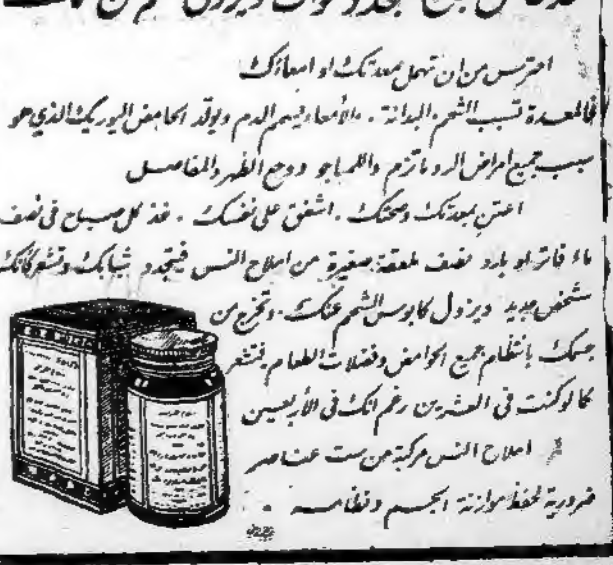 احترس من ان تهمل معدتك او امعاءك
فالمعدة تسبب الشحم والبدانة . والأمعاء تسمم الدم وتولد الحامض اليوريك الذي هو
سبب جميع امراض الروماتزم واللمباجو ووجع الظهر والمفاصل
اعتن بمعدتك وصحتك . اشفق على نفسك . خذ كل صباح في نصف
ماء فاتر او بارد نصف ملعقة صغيرة من املاح النس فيتجدد شبابك وتشعر كأنك
شخص جديد ويزول كابوس الشحم عنك . وتخرج من
جسمك بانتظام جميع الحوامض وفضلات الطعام فتشعر
كما لو كنت في العشرين رغم انك في الأربعين
املاح النس مركبة من ست عناصر
ضرورية لحفظ موازنة الجسم ونظامه .